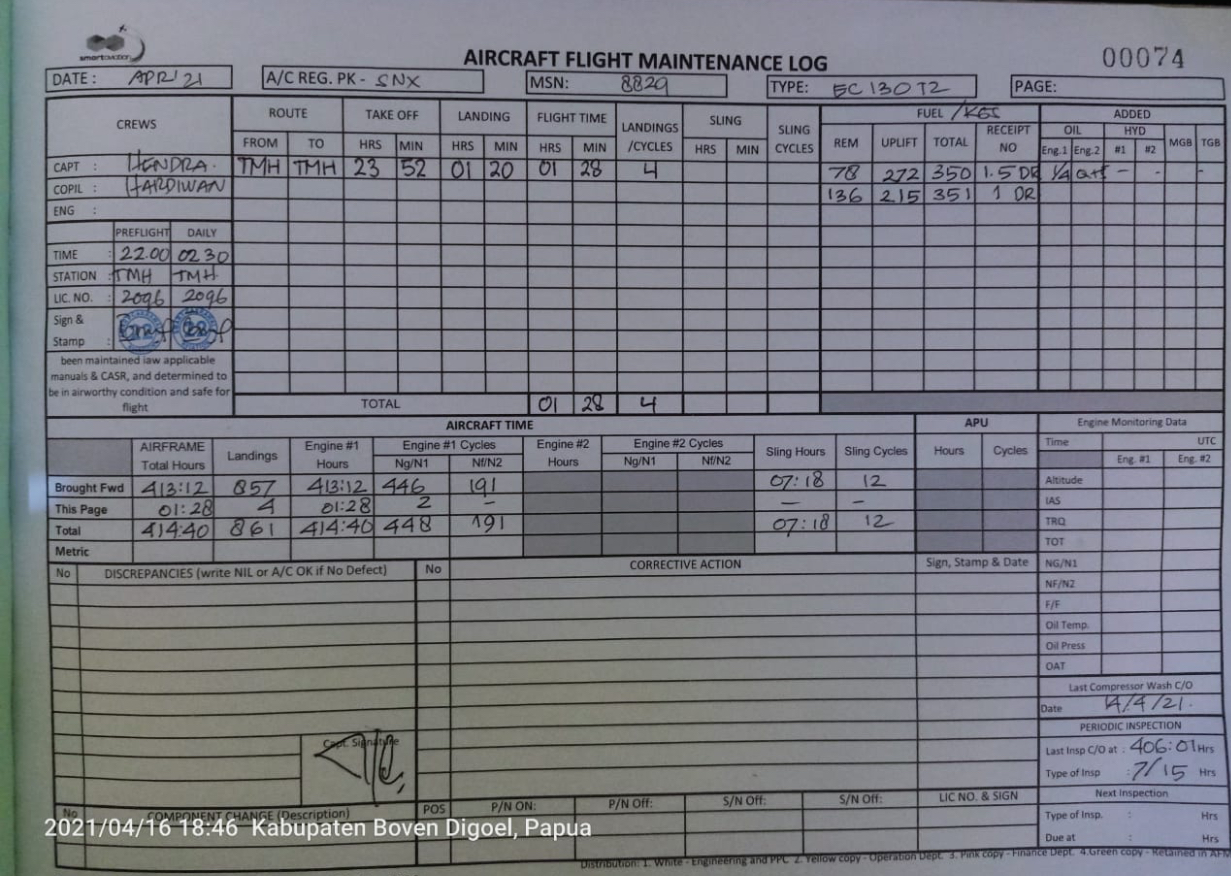 smartaviation
AIRCRAFT FLIGHT MAINTENANCE LOG
00074
DATE : APR' 21 A/C REG. PK - SNX MSN: 8829 TYPE: EC 130 T2 PAGE:
CREWS ROUTE TAKE OFF LANDING FLIGHT TIME LANDINGS /CYCLES SLING SLING CYCLES FUEL /KGS ADDED
FROM TO HRS MIN HRS MIN HRS MIN HRS MIN REM UPLIFT TOTAL RECEIPT NO OIL HYD MGB TGB
Eng.1 Eng.2 #1 #2
CAPT : HENDRA. TMH TMH 23 52 01 20 01 28 4 78 272 350 1.5 DR 1/4 qrt - - -
COPIL : HARDIWAN 136 215 351 1 DR
ENG :
PREFLIGHT DAILY
TIME : 22.00 02 30
STATION : TMH TMH
LIC. NO. : 2096 2096
Sign &
Stamp :
been maintained iaw applicable
manuals & CASR, and determined to
be in airworthy condition and safe for
flight
TOTAL 01 28 4
AIRCRAFT TIME APU Engine Monitoring Data
AIRFRAME Total Hours Landings Engine #1 Hours Engine #1 Cycles Engine #2 Hours Engine #2 Cycles Sling Hours Sling Cycles Hours Cycles Time UTC
Ng/N1 Nf/N2 Ng/N1 Nf/N2 Eng. #1 Eng. #2
Brought Fwd 413:12 857 413:12 446 191 07:18 12 Altitude
This Page 01:28 4 01:28 2 - - - IAS
Total 414:40 861 414:40 448 191 07:18 12 TRQ
Metric TOT
No DISCREPANCIES (write NIL or A/C OK if No Defect) No CORRECTIVE ACTION Sign, Stamp & Date NG/N1
NF/N2
F/F
Oil Temp.
Oil Press
OAT
Last Compressor Wash C/O
Date 14/4/21.
PERIODIC INSPECTION
Capt. Signature
Last Insp C/O at : 406:01 Hrs
Type of Insp : 7/15 Hrs
No COMPONENT CHANGE (Description) POS P/N ON: P/N Off: S/N Off: S/N Off: LIC NO. & SIGN Next Inspection
Type of Insp. : Hrs
Due at : Hrs
2021/04/16 18:46 Kabupaten Boven Digoel, Papua
Distribution: 1. White - Engineering and PPC 2. Yellow copy - Operation Dept. 3. Pink copy - Finance Dept. 4.Green copy - Retained in AFM